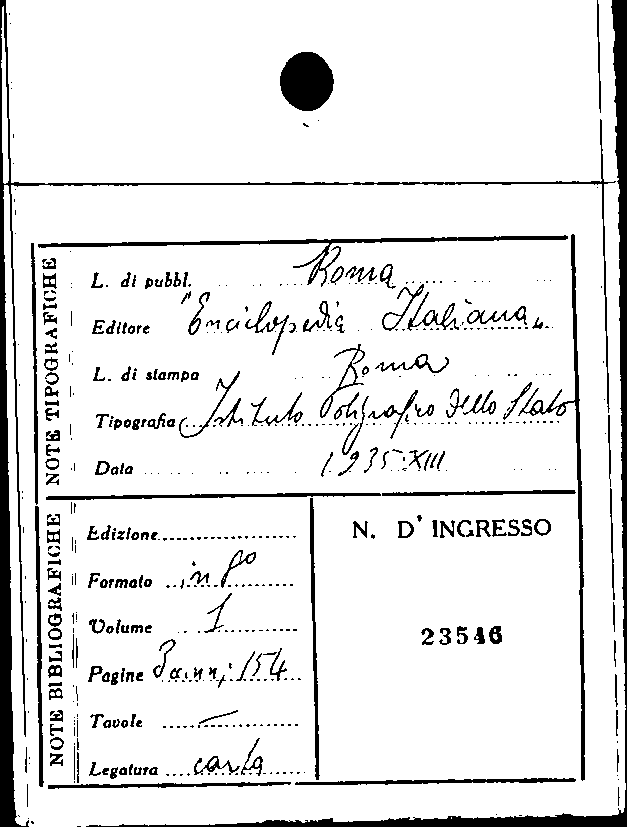 NOTE TIPOGRAFICHE
L. di pubbl. Roma
Editore "Enciclopedia Italiana"
L. di stampa Roma
Tipografia Istituto Poligrafico dello Stato
Data 1935-XIII
NOTE BIBLIOGRAFICHE
Edizione
Formato in 8º
Volume 1
Pagine 154
Tavole —
Legatura carta
N. D'INGRESSO
23546